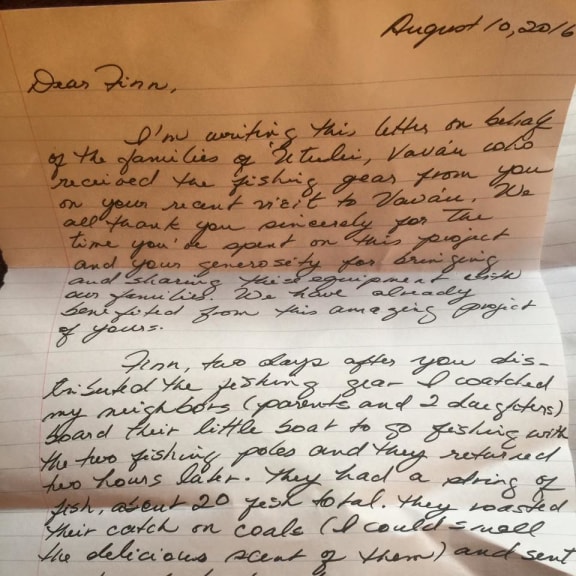 August 10, 2016
Dear Finn,
I'm writing this letter on behalf
of the families of 'Utulei, Vava'u who
received the fishing gear from you
on your recent visit to Vava'u. We
all thank you sincerely for the
time you've spent on this project
and your generosity for bringing
and sharing these equipment with
our families. We have already
benefited from this amazing project
of yours.
Finn, two days after you dis-
tributed the fishing gear I coatched
my neighbors (parents and 2 daughters)
board their little boat to go fishing with
the two fishing poles and they returned
two hours later. They had a string of
fish, about 20 fish total. They roasted
their catch on coals (I could smell
the delicious scent of them) and sent